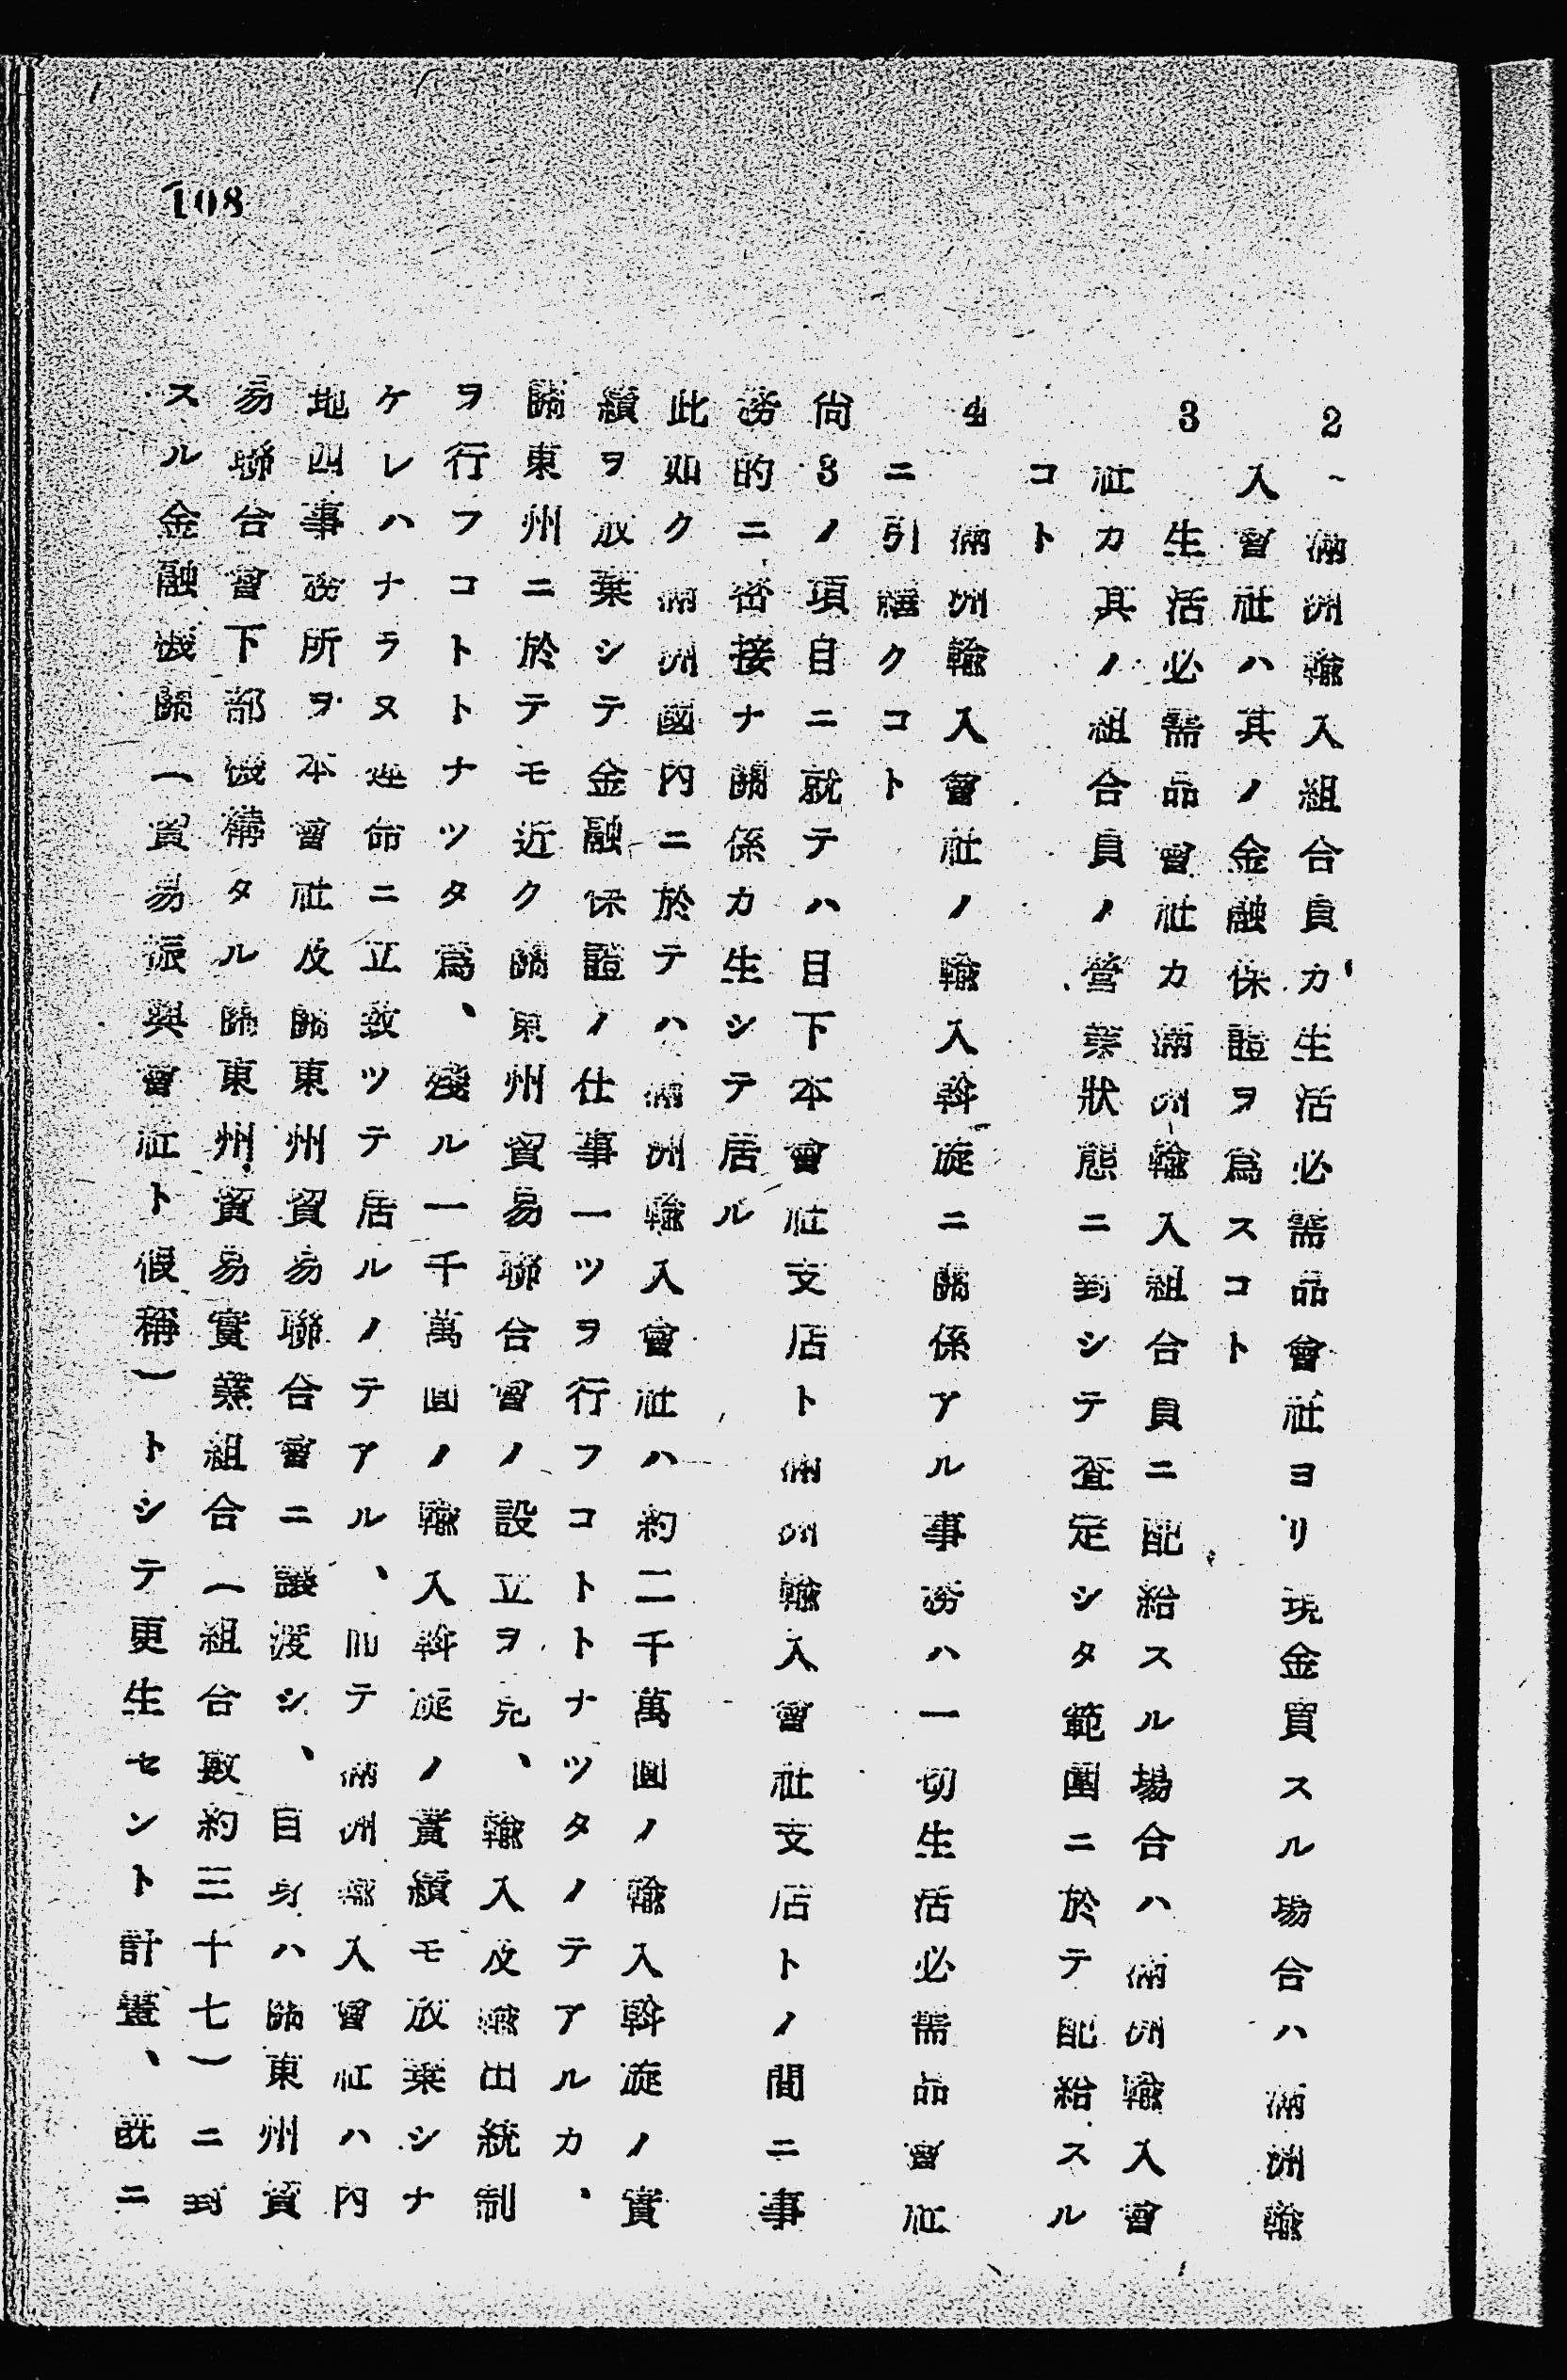 108
2、滿洲輸入組合員カ生活必需品會社ヨリ現金買スル場合ハ滿洲輸
入會社ハ其ノ金融保證ヲ爲スコト
3 生活必需品會社カ滿洲輸入組合員ニ配給スル場合ハ滿洲輸入會
社カ其ノ組合員ノ營業狀態ニ到シテ査定シタ範圍ニ於テ配給スル
コト
4 滿洲輸入會社ノ輸入斡旋ニ關係アル事務ハ一切生活必需品會社
ニ引繼クコト
尙3ノ項目ニ就テハ目下本會社支店ト滿洲輸入會社支店トノ間ニ事
務的ニ密接ナ關係カ生シテ居ル
此如ク滿洲國內ニ於テハ滿洲輸入會社ハ約二千萬圓ノ輸入斡旋ノ實
績ヲ放棄シテ金融保證ノ仕事一ツヲ行フコトトナツタノテアルカ、
關東州ニ於テモ近ク關東州貿易聯合會ノ設立ヲ見、輸入及輸出統制
ヲ行フコトトナツタ爲、殘ル一千萬圓ノ輸入斡旋ノ實績モ放棄シナ
ケレハナラヌ運命ニ立致ツテ居ルノテアル、而テ滿洲輸入會社ハ內
地四事務所ヲ本會社及關東州貿易聯合會ニ讓渡シ、自身ハ關東州貿
易聯合會下部機構タル關東州貿易實業組合(組合數約三十七)ニ到
スル金融機關(貿易振興會社ト假稱)トシテ更生セント計畫、既ニ